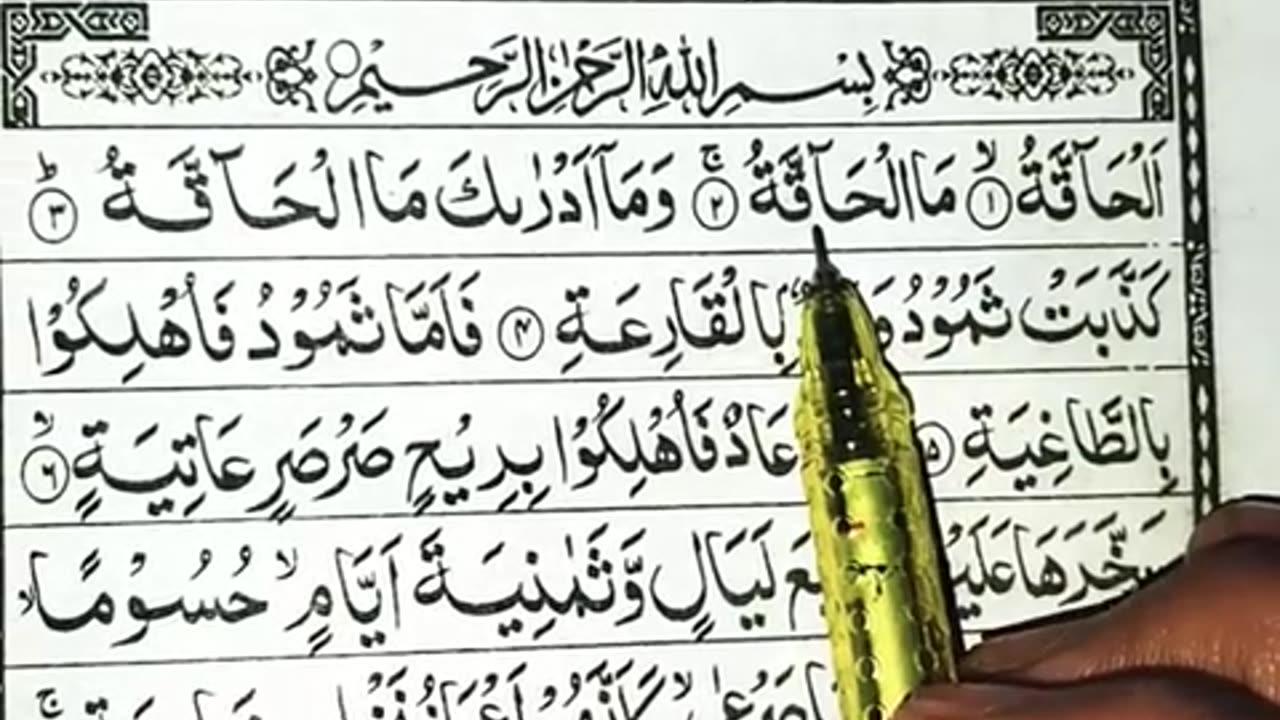 بِسْمِ اللهِ الرَّحْمٰنِ الرَّحِيْمِ
اَلْحَآقَّةُ ۙ﴿۱﴾ مَا الْحَآقَّةُ ۚ﴿۲﴾ وَمَاۤ اَدْرٰىكَ مَا الْحَآقَّةُ ؕ﴿۳﴾
كَذَّبَتْ ثَمُوْدُ بِالْقَارِعَةِ ﴿۴﴾ فَاَمَّا ثَمُوْدُ فَاُهْلِكُوْا
بِالطَّاغِيَةِ ﴿۵﴾ عَادٌ فَاُهْلِكُوْا بِرِيْحٍ صَرْصَرٍ عَاتِيَةٍ ۙ﴿۶﴾
سَخَّرَهَا لَيَالٍ وَّثَمٰنِيَةَ اَيَّامٍ ۙ حُسُوْمًا ۙ